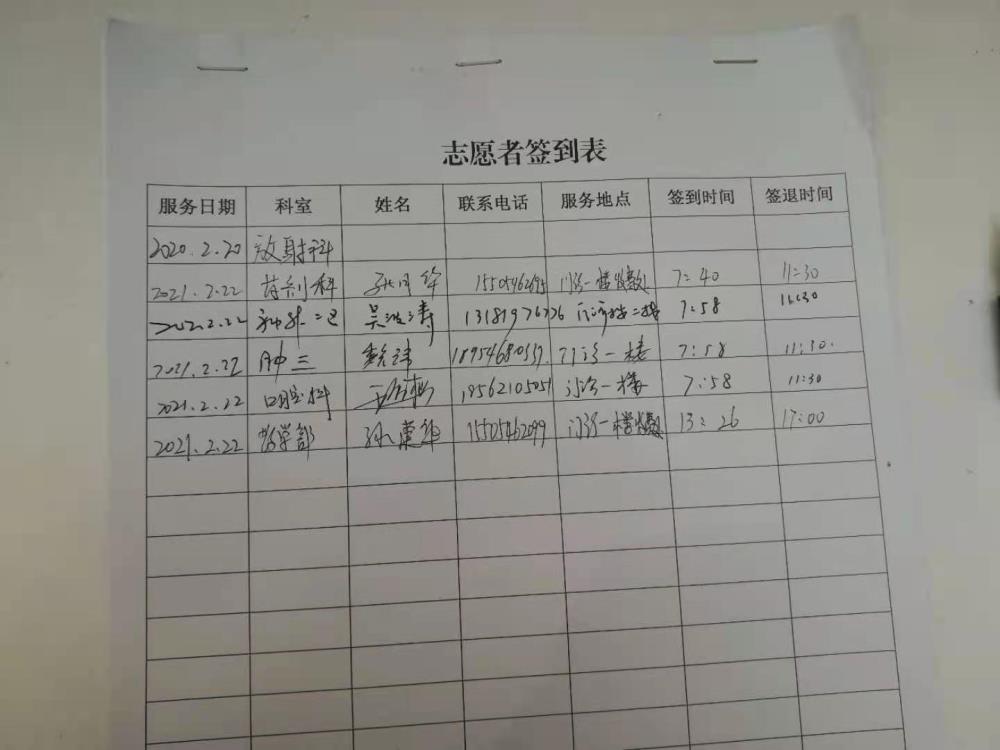 志愿者签到表
服务日期 科室 姓名 联系电话 服务地点 签到时间 签退时间
2020.2.20 放射科
2021.2.22 药剂科 门诊一楼 7:40 11:30
2021.2.22 吴波涛 13181976726 二楼 7:58 11:30
2021.2.22 肿三 门诊一楼 7:58 11:30.
2021.2.22 口腔科 19562105051 门诊一楼 7:58 11:30
2021.2.22 药学部 15505462099 门诊一楼 13:26 17:00